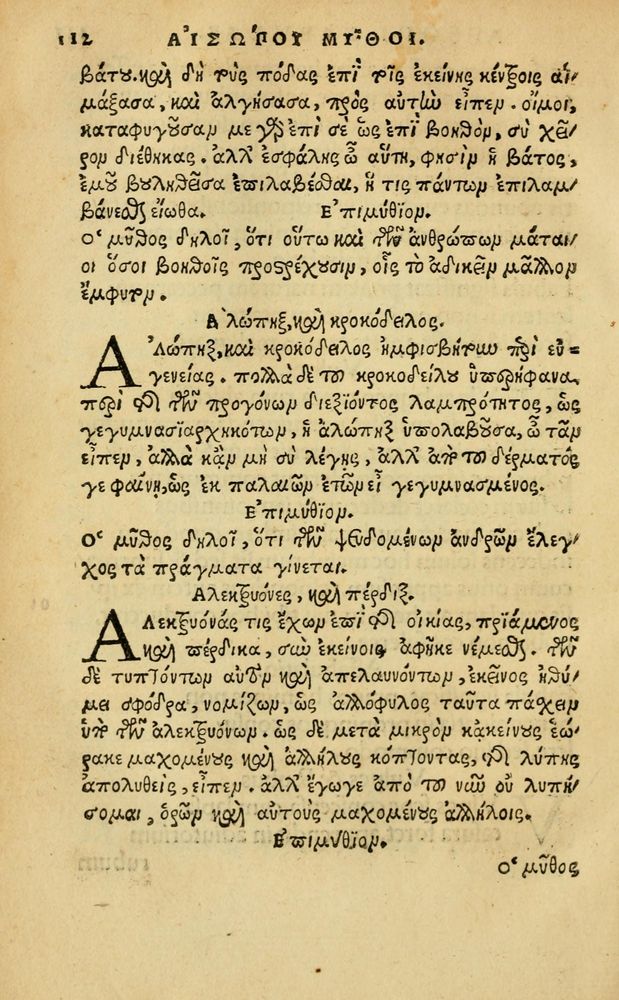 112 ΑΙΣΩΠΟΥ ΜΥΘΟΙ.
βάτου. καὶ δὴ τοὺς πόδας ἐπὶ τοῖς ἐκείνης κέντροις αἱ-
μάξασα, καὶ ἀλγήσασα, πρὸς αὐτὴν εἶπεν. οἴμοι,
καταφυγοῦσαν με γὰρ ἐπὶ σὲ ὡς ἐπὶ βοηθὸν, σὺ χεῖ-
ρον διέθηκας. ἀλλ' ἐσφάλης ὦ αὕτη, φησὶν ἡ βάτος,
ἐμοῦ βουληθεῖσα ἐπιλαβέσθαι, ἥ τις πάντων ἐπιλαμ-
βάνεσθαι εἴωθα. Ἐπιμύθιον.
Ὁ μῦθος δηλοῖ, ὅτι οὕτω καὶ τῶν ἀνθρώπων μάται-
οι ὅσοι βοηθοῖς προστρέχουσιν, οἷς τὸ ἀδικεῖν μᾶλλον
ἔμφυτον.
Ἀλώπηξ, καὶ κροκόδειλος.
Ἀλώπηξ, καὶ κροκόδειλος ἠμφισβήτουν περὶ εὐ-
γενείας. πολλὰ δὲ τοῦ κροκοδείλου ὑπερήφανα
περὶ τῆς τῶν προγόνων διεξϊόντος λαμπρότητος, ὡς
γεγυμνασϊαρχηκότων, ἡ ἀλώπηξ ὑπολαβοῦσα, ὦ τᾶν
εἶπεν, ἀλλὰ κἂν μὴ σὺ λέγῃς, ἀλλ' ἀπὸ τοῦ δέρματός
γε φαίνῃ, ὡς ἐκ παλαιῶν ἐτῶν εἶ γεγυμνασμένος.
Ἐπιμύθιον.
Ὁ μῦθος δηλοῖ, ὅτι τῶν ψευδομένων ἀνδρῶν ἔλεγ-
χος τὰ πράγματα γίνεται.
Ἀλεκτρυόνες, καὶ πέρδιξ.
Ἀλεκτρυόνάς τις ἔχων ἐπὶ τῆς οἰκίας, πριάμενος
καὶ πέρδικα, σὺν ἐκείνοις ἀφῆκε νέμεσθαι. τῶν
δὲ τυπτόντων αὐτὸν καὶ ἀπελαυνόντων, ἐκεῖνος ἠθύ-
μει σφόδρα, νομίζων, ὡς ἀλλόφυλος ταῦτα πάσχειν
ὑπὸ τῶν ἀλεκτρυόνων. ὡς δὲ μετὰ μικρὸν κἀκείνους ἑώ-
ρακε μαχομένους καὶ ἀλλήλους κόπτοντας, τῆς λύπης
ἀπολυθεὶς, εἶπεν. ἀλλ' ἔγωγε ἀπὸ τοῦ νῦν οὐ λυπή-
σομαι, ὁρῶν καὶ αὐτοὺς μαχομένους ἀλλήλοις.
Ἐπιμύθϊον.
Ὁ μῦθος